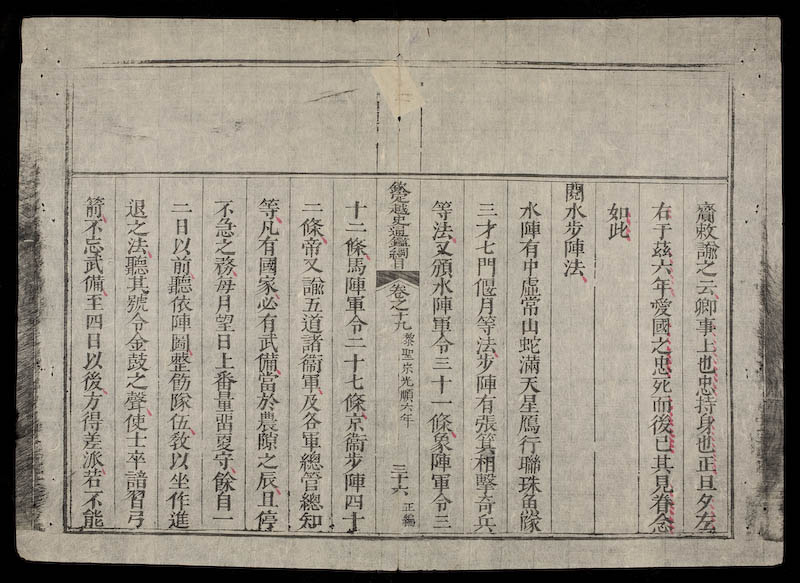 齎敕諭之云卿事上也忠持身也正旦夕左
右于茲六年愛國之忠死而後已其見眷念
如此
閱水步陣法
水陣有中虛常山蛇滿天星鴈行聯珠魚隊
三才七門偃月等法步陣有張箕相擊奇兵
等法又頒水陣軍令三十一條象陣軍令三
欽定越史通鑑綱目 卷之十九 黎聖宗光順六年 三十六 正編
十二條馬陣軍令二十七條京衞步陣四十
二條帝又諭五道諸衞軍及各軍總管總知
等凡有國家必有武備當於農隙之辰且停
不急之務每月望日上番量畱更守餘自一
二日以前聽依陣圖整飭隊伍敎以坐作進
退之法聽其號令金鼓之聲使士卒諳習弓
箭不忘武備至四日以後方得差派若不能